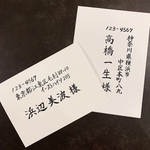 123-4567
東京都江東区
浜辺美波様
123-4567
神奈川県横浜市
中区本町一八九
高橋一生様